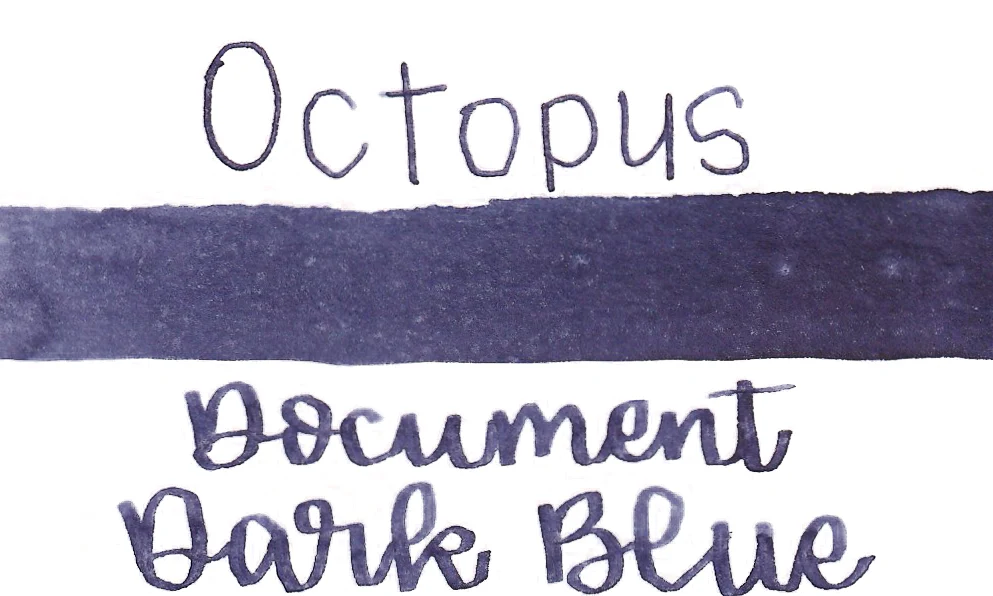 Octopus
Document
Dark Blue